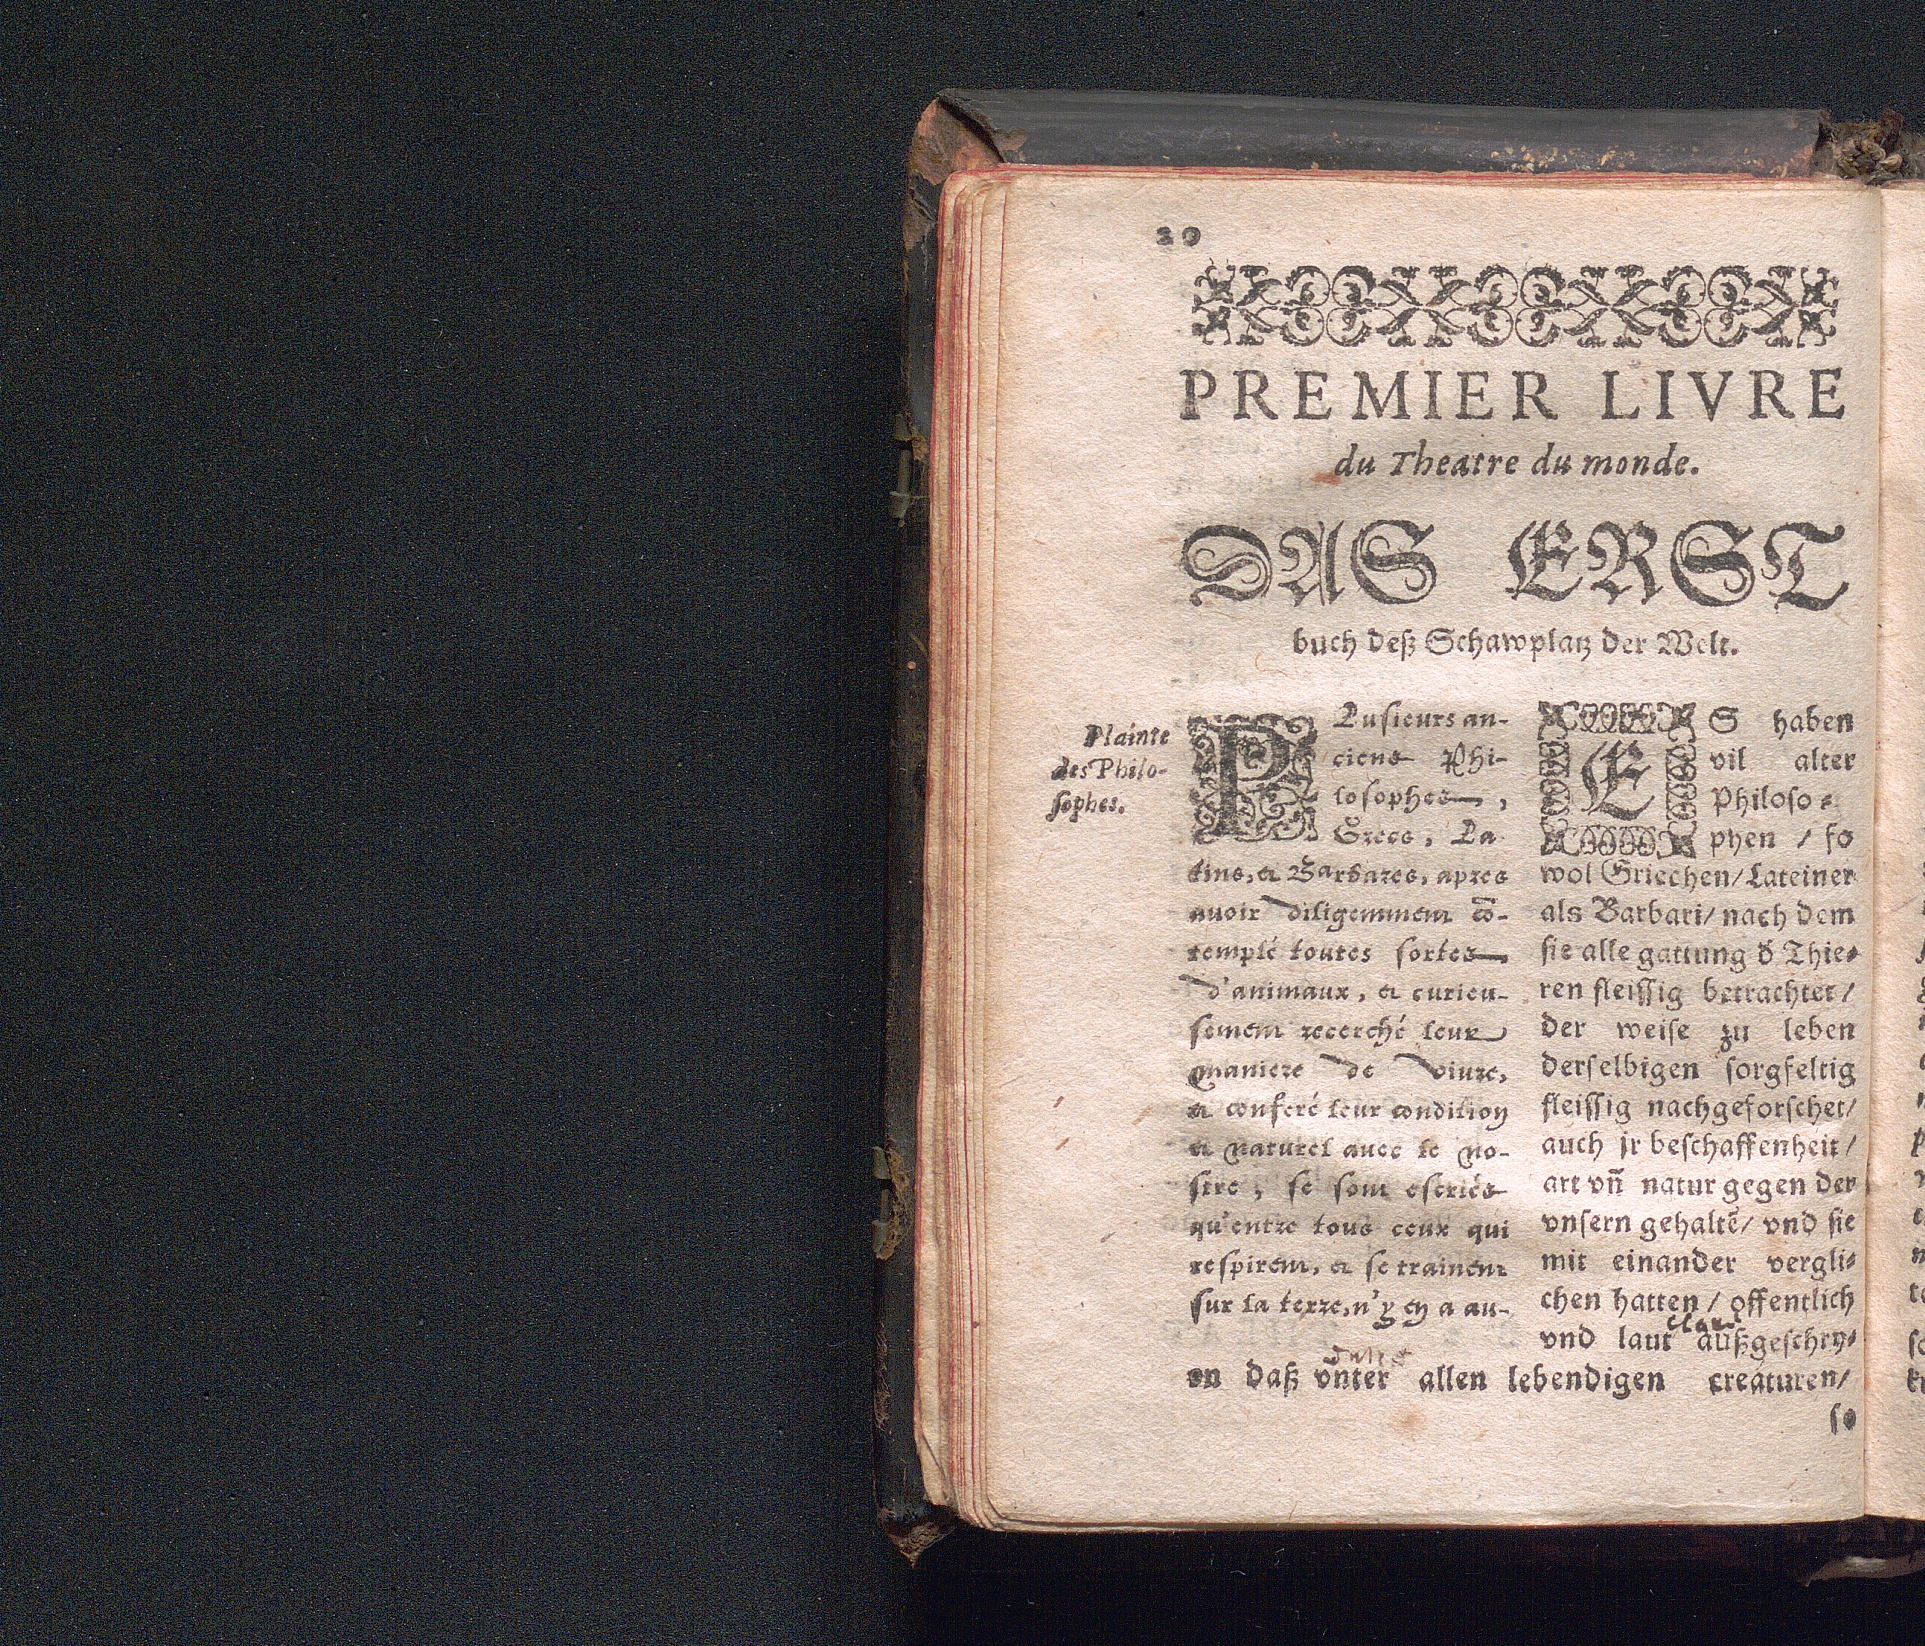 20
PREMIER LIVRE
du Theatre du monde.
DAS ERST
buch deß Schawplatz der Welt.
Plainte
des Philo-
sophes.
PLusieurs an-
ciens Phi-
losophes,
Grecs, La-
tins, et Barbares, apres
auoir diligemment cō-
templé toutes sortes
d'animaux, et curieu-
sement recerché leur
maniere de viure,
et conferé leur condition
et naturel auec le no-
stre, se sont escriés
qu'entre tous ceux qui
respirent, et se trainent
sur la terre, n'y en a au-
ES haben
vil alter
Philoso-
phen / so
wol Griechen/ Lateiner
als Barbari/ nach dem
sie alle gattung đ Thie-
ren fleissig betrachtet/
der weise zu leben
derselbigen sorgfeltig
fleissig nachgeforschet/
auch jr beschaffenheit/
art vñ natur gegen der
vnsern gehaltē/ vnd sie
mit einander vergli-
chen hatten / offentlich
vnd laut außgeschry-
en daß vnter allen lebendigen creaturen/
so